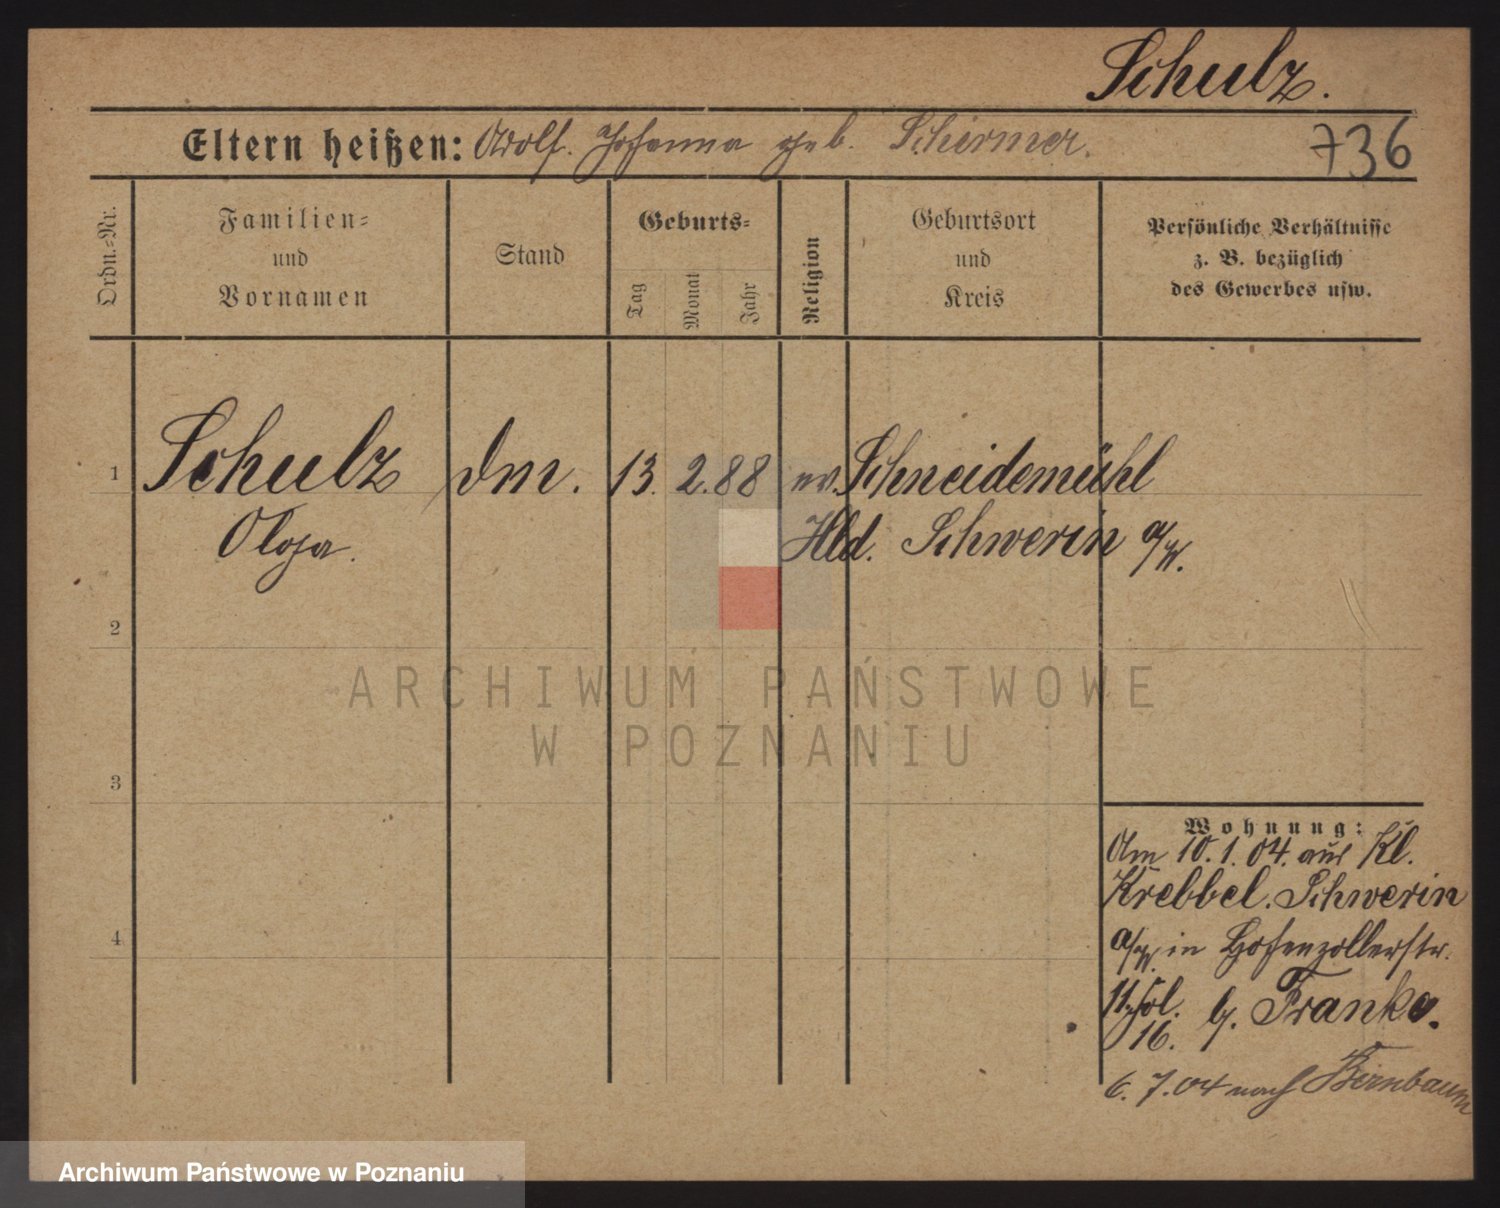 Schulz.
Eltern heißen: Adolf. Johanna geb. Schirmer.
736
Ordn.=Nr.
Familien=
und
Vornamen
Stand
Geburts=
Tag
Monat
Jahr
Religion
Geburtsort
und
Kreis
Persönliche Verhältnisse
z. B. bezüglich
des Gewerbes usw.
1 Schulz dm. 13. 2. 88 ev. Schneidemühl
Olga. Hld. Schwerin a/W.
2
3
4
Wohnung:
Am 10. 1. 04. aus Kl.
Krebbel. Schwerin
a/W. in Hohenzollerstr.
11. fol. b. Franke.
16.
6. 7. 04 nach Birnbaum
ARCHIWUM PAŃSTWOWE
W POZNANIU
Archiwum Państwowe w Poznaniu